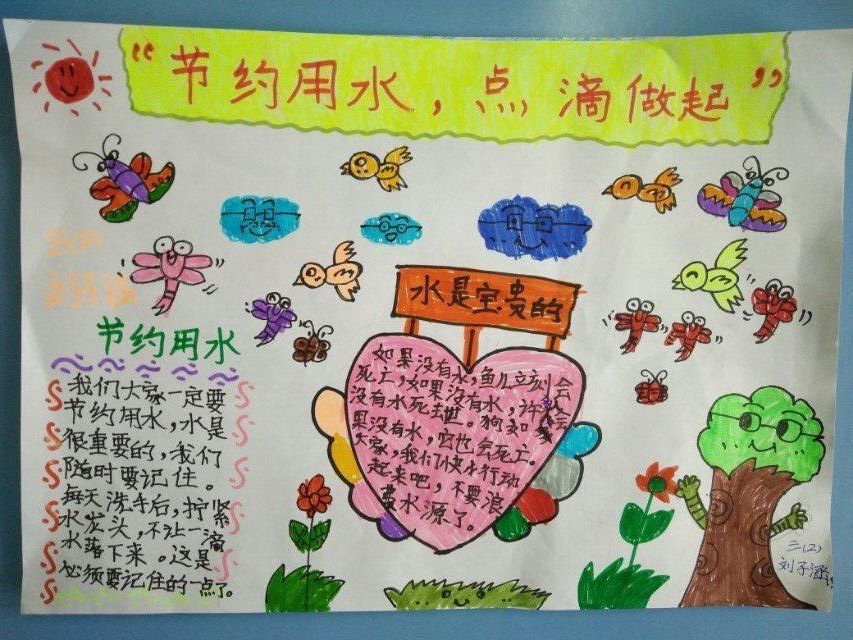 “节约用水，点滴做起”
三(2)
水是宝贵的
节约用水
我们大家一定要
节约用水，水是
很重要的，我们
随时要记住。
每天洗手后，拧紧
水龙头，不让一滴
水落下来。这是
必须要记住的一点了。
如果没有水，鱼儿立刻会
死亡，如果没有水，许多人会
没有水死去世。狗如
果没有水，它也会死亡。
大家，我们快水行动
起来吧，不要浪
费水源了。
三(2)
刘子涵